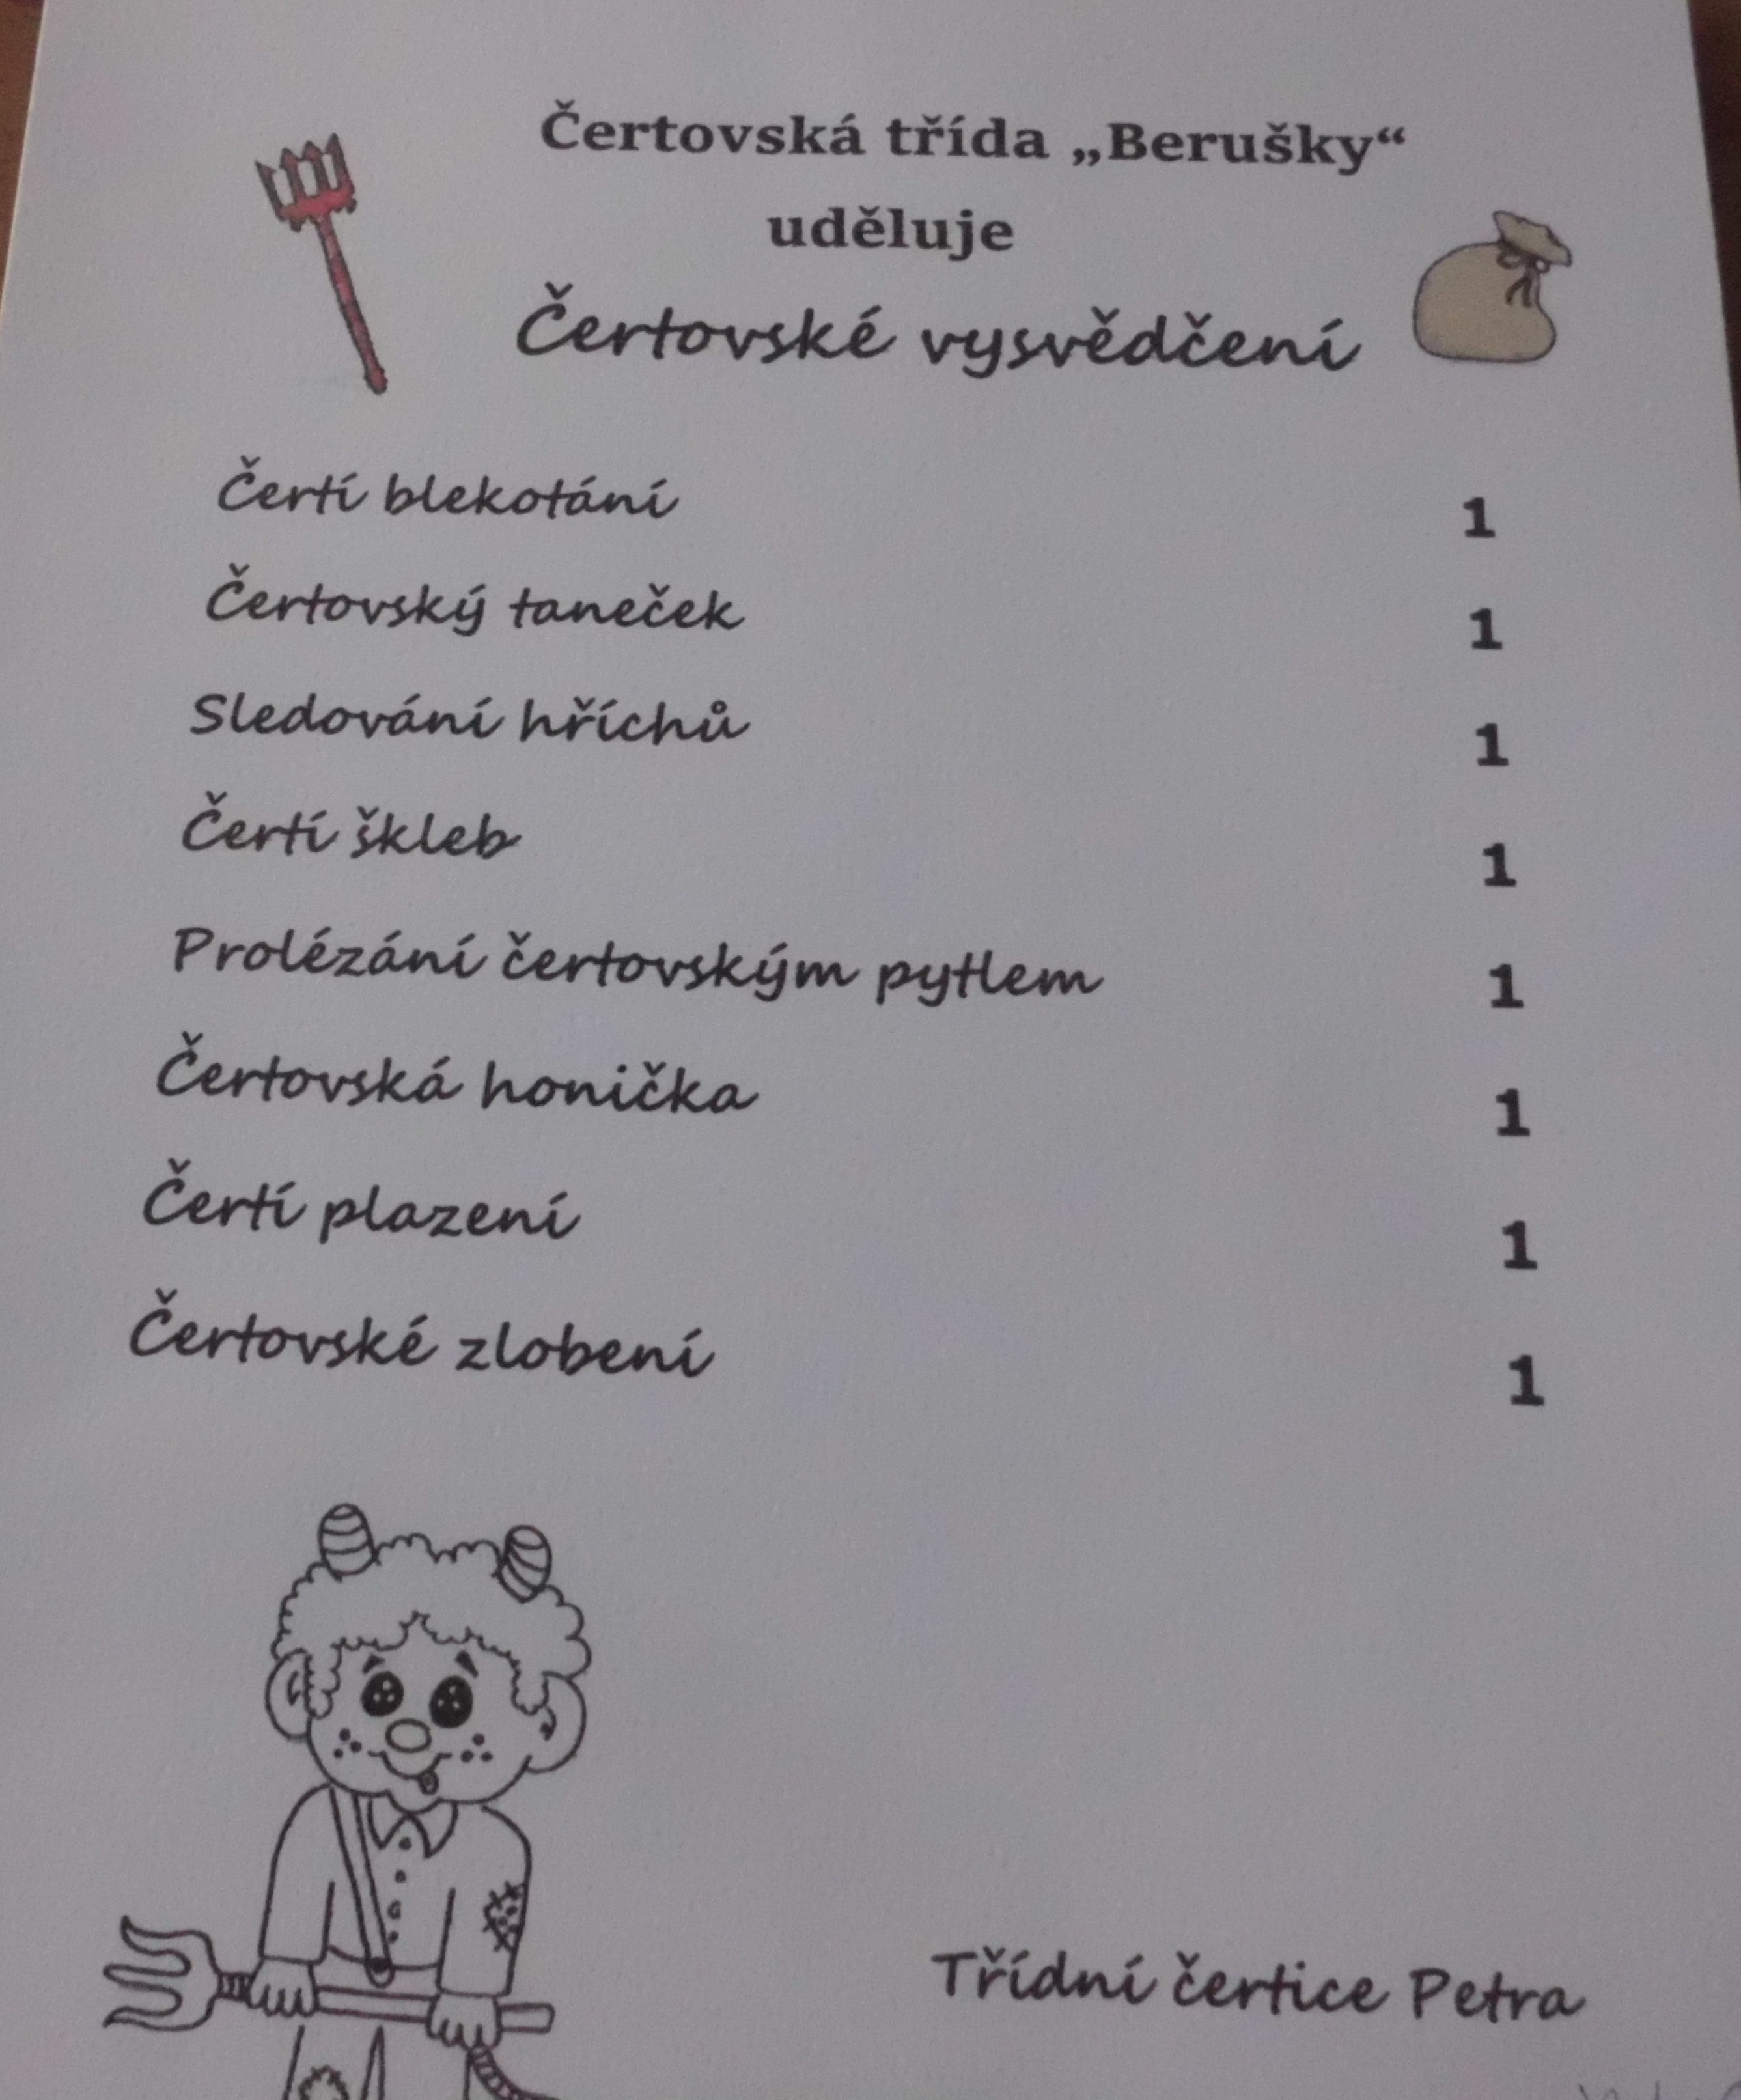 Čertovská třída „Berušky“
uděluje
Čertovské vysvědčení
Čertí blekotání 1
Čertovský taneček 1
Sledování hříchů 1
Čertí škleb 1
Prolézání čertovským pytlem 1
Čertovská honička 1
Čertí plazení 1
Čertovské zlobení 1
Třídní čertice Petra